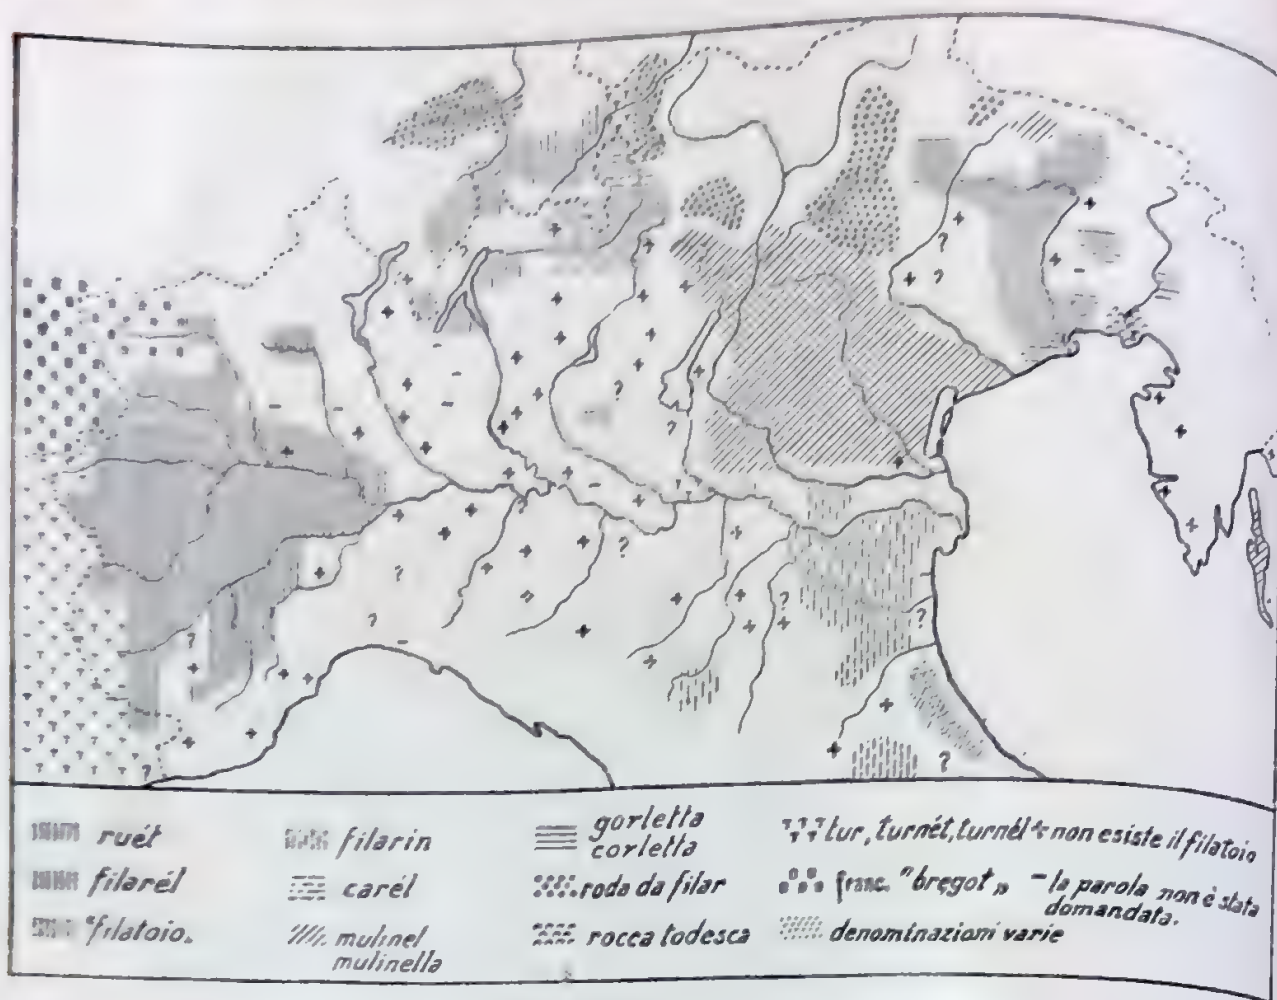 ruét
filarél
"filatoio"
filarin
carél
mulinel
mulinella
gorletta
corletta
roda da filar
rocca todesca
tur, turnét, turnél
franc. "bregot"
denominazioni varie
+ non esiste il filatoio
- la parola non è stata
domandata.